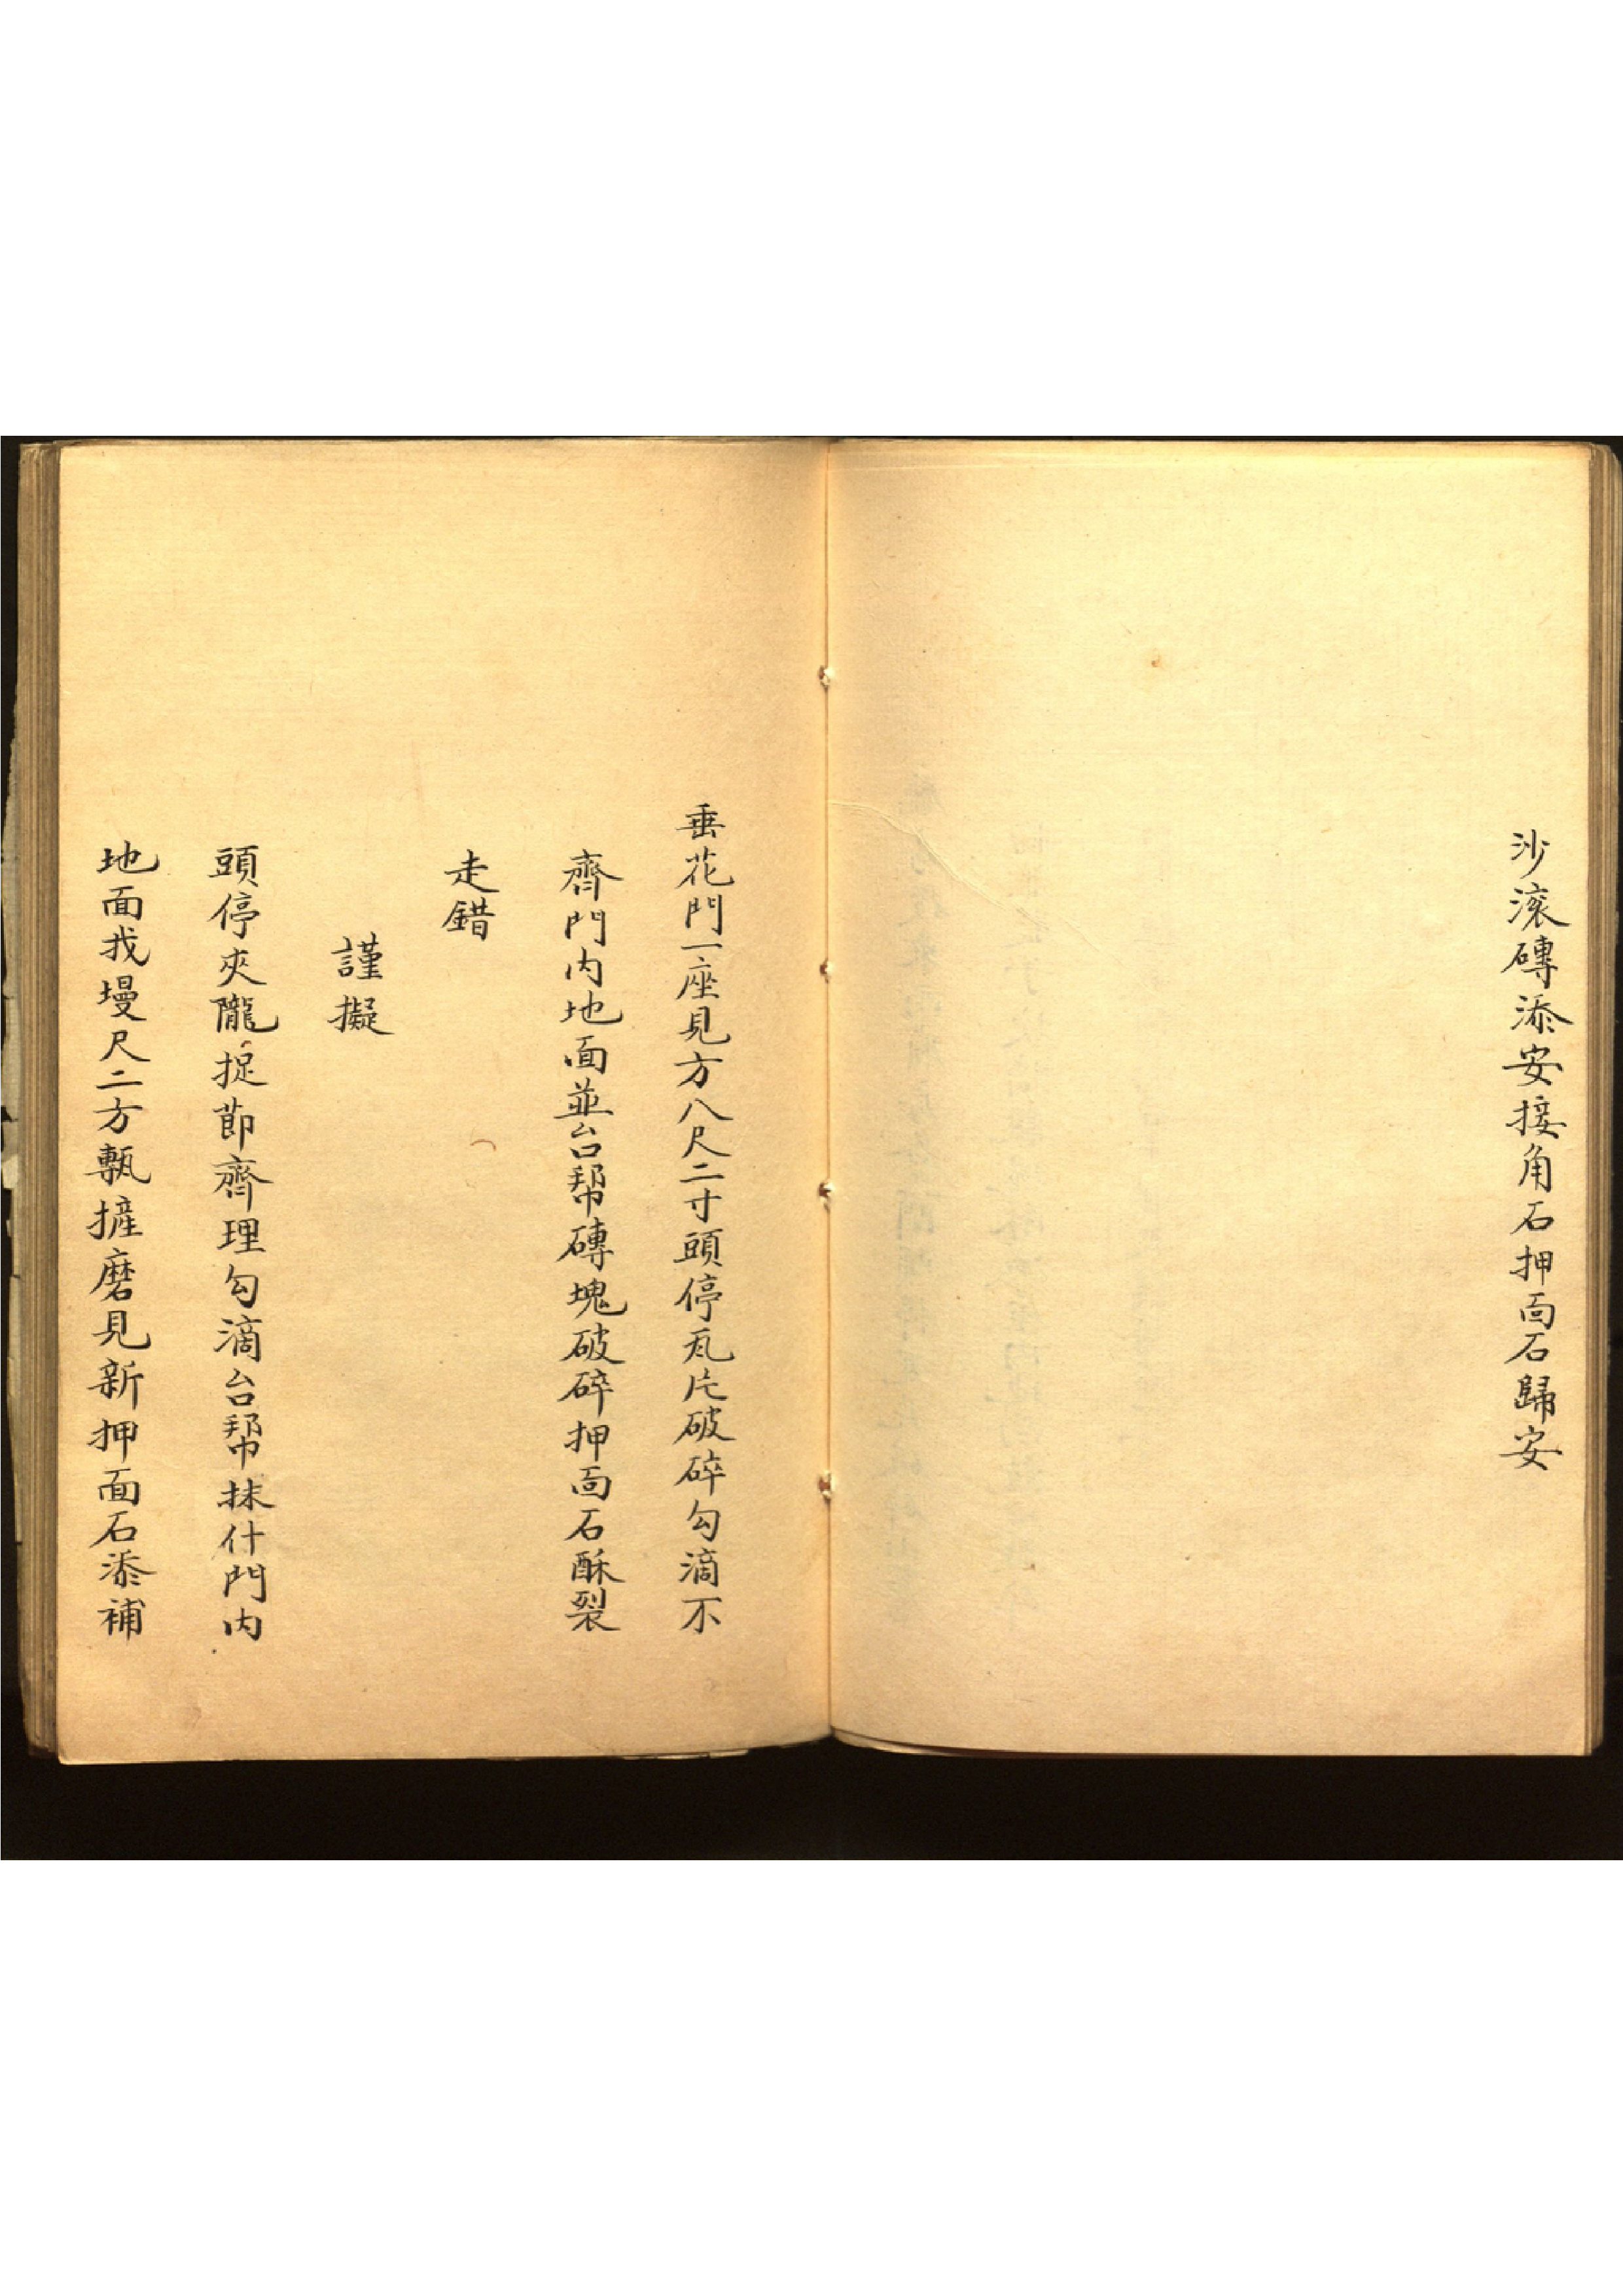 沙滚磚添安接角石押面石歸安
垂花門一座見方八尺二寸頭停瓦片破碎勾滴不
齊門内地面並台幇磚塊破碎押面石酥裂
走錯
謹擬
頭停夾隴捉節齊理勾滴台幇抹什門内
地面找墁尺二方甎摌磨見新押面石添補